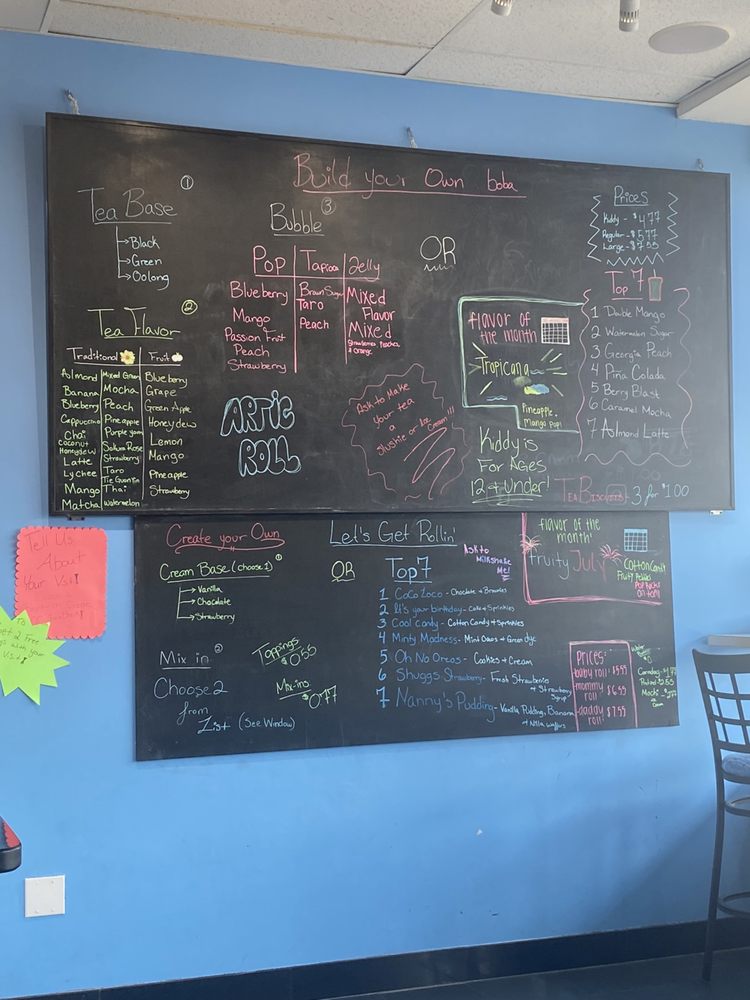 Build your Own boba
Tea Base ①
Black
Green
Oolong
Tea Flavor ②
Traditional
Almond
Banana
Blueberry
Cappuccino
Chai
Coconut
Honeydew
Latte
Lychee
Mango
Matcha
Mixed Green
Mocha
Peach
Pineapple
Purple yam
Sakura Rose
Strawberry
Taro
Tie Guan Yin
Thai
Watermelon
Fruit
Blueberry
Grape
Green Apple
Honeydew
Lemon
Mango
Pineapple
Strawberry
Bubble ③
Pop
Blueberry
Mango
Passion Fruit
Peach
Strawberry
Tapioca
Brown Sugar
Taro
Peach
Jelly
Mixed
Flavor
Mixed
Strawberries, Peaches,
& Orange
OR
ARTIC
ROLL
Ask to Make
your tea
a
slushie or Ice
Cream!!!
flavor of
the month
Tropicana
Pineapple,
Mango Pop!
Kiddy is
For Ages
12 & Under!
Prices
Kiddy - $4.77
Regular - $5.77
Large - $7.55
Top 7
1 Double Mango
2 Watermelon Sugar
3 Georgia Peach
4 Piña Colada
5 Berry Blast
6 Caramel Mocha
7 Almond Latte
Tea Biscuits - 3 for $1.00
Create your Own
Cream Base (choose 1) ①
Vanilla
Chocolate
Strawberry
Mix in ②
Choose 2
from
List (See Window)
Toppings
$0.55
Mix-ins
$0.77
Let's Get Rollin'
OR
Top 7
Ask to
Milkshake
Me!
1 CoCo Loco - Chocolate & Brownies
2 It's your birthday - Cake & Sprinkles
3 Cool candy - Cotton Candy & Sprinkles
4 Minty Madness - Mint Oreos & Green dye
5 Oh No Oreos - Cookies & Cream
6 Shuggs Strawberry - Fresh Strawberries
& Strawberry
Syrup
7 Nanny's Pudding - Vanilla Pudding, Banana
& Nilla Waffers
flavor of
the month
fruity July
Cotton Candy
Fruity Pebbles
Pop Rocks
on top!!
Prices:
baby roll: $5.55
mommy
roll: $6.55
daddy
roll: $7.55
Water
Tell Us
About
Your Visit!